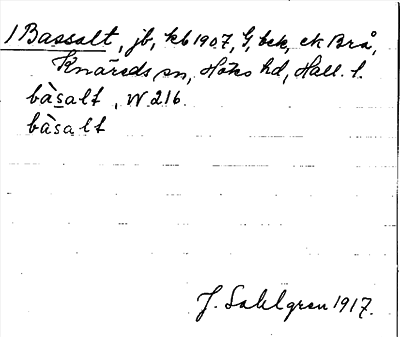 1 Bassalt, jb, kb 1907, G, bek, ek Brå,
Knäreds sn, Höks hd, Hall. l.
bàsalt, W 216.
bàsalt
J. Sahlgren 1917.